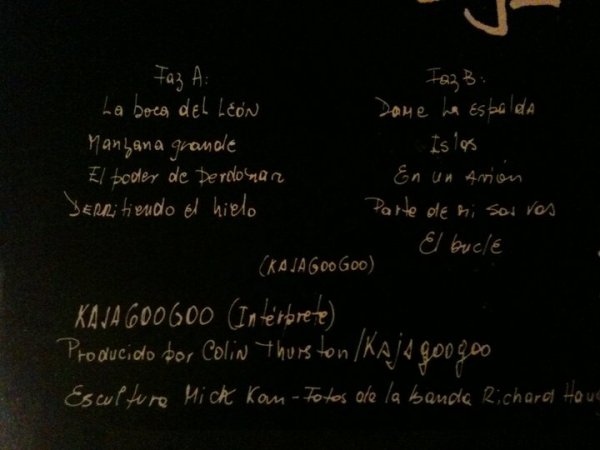 Faz A:
La boca del León
Manzana grande
El poder de Perdonar
Derritiendo el hielo
Faz B:
Dame la espalda
Islas
En un Avión
Parte de mi sos vos
El bucle
(KAJAGOOGOO)
KAJAGOOGOO (Intérprete)
Producido por Colin Thurston/Kajagoogoo
Escultura Mick Karn-Fotos de la banda Richard